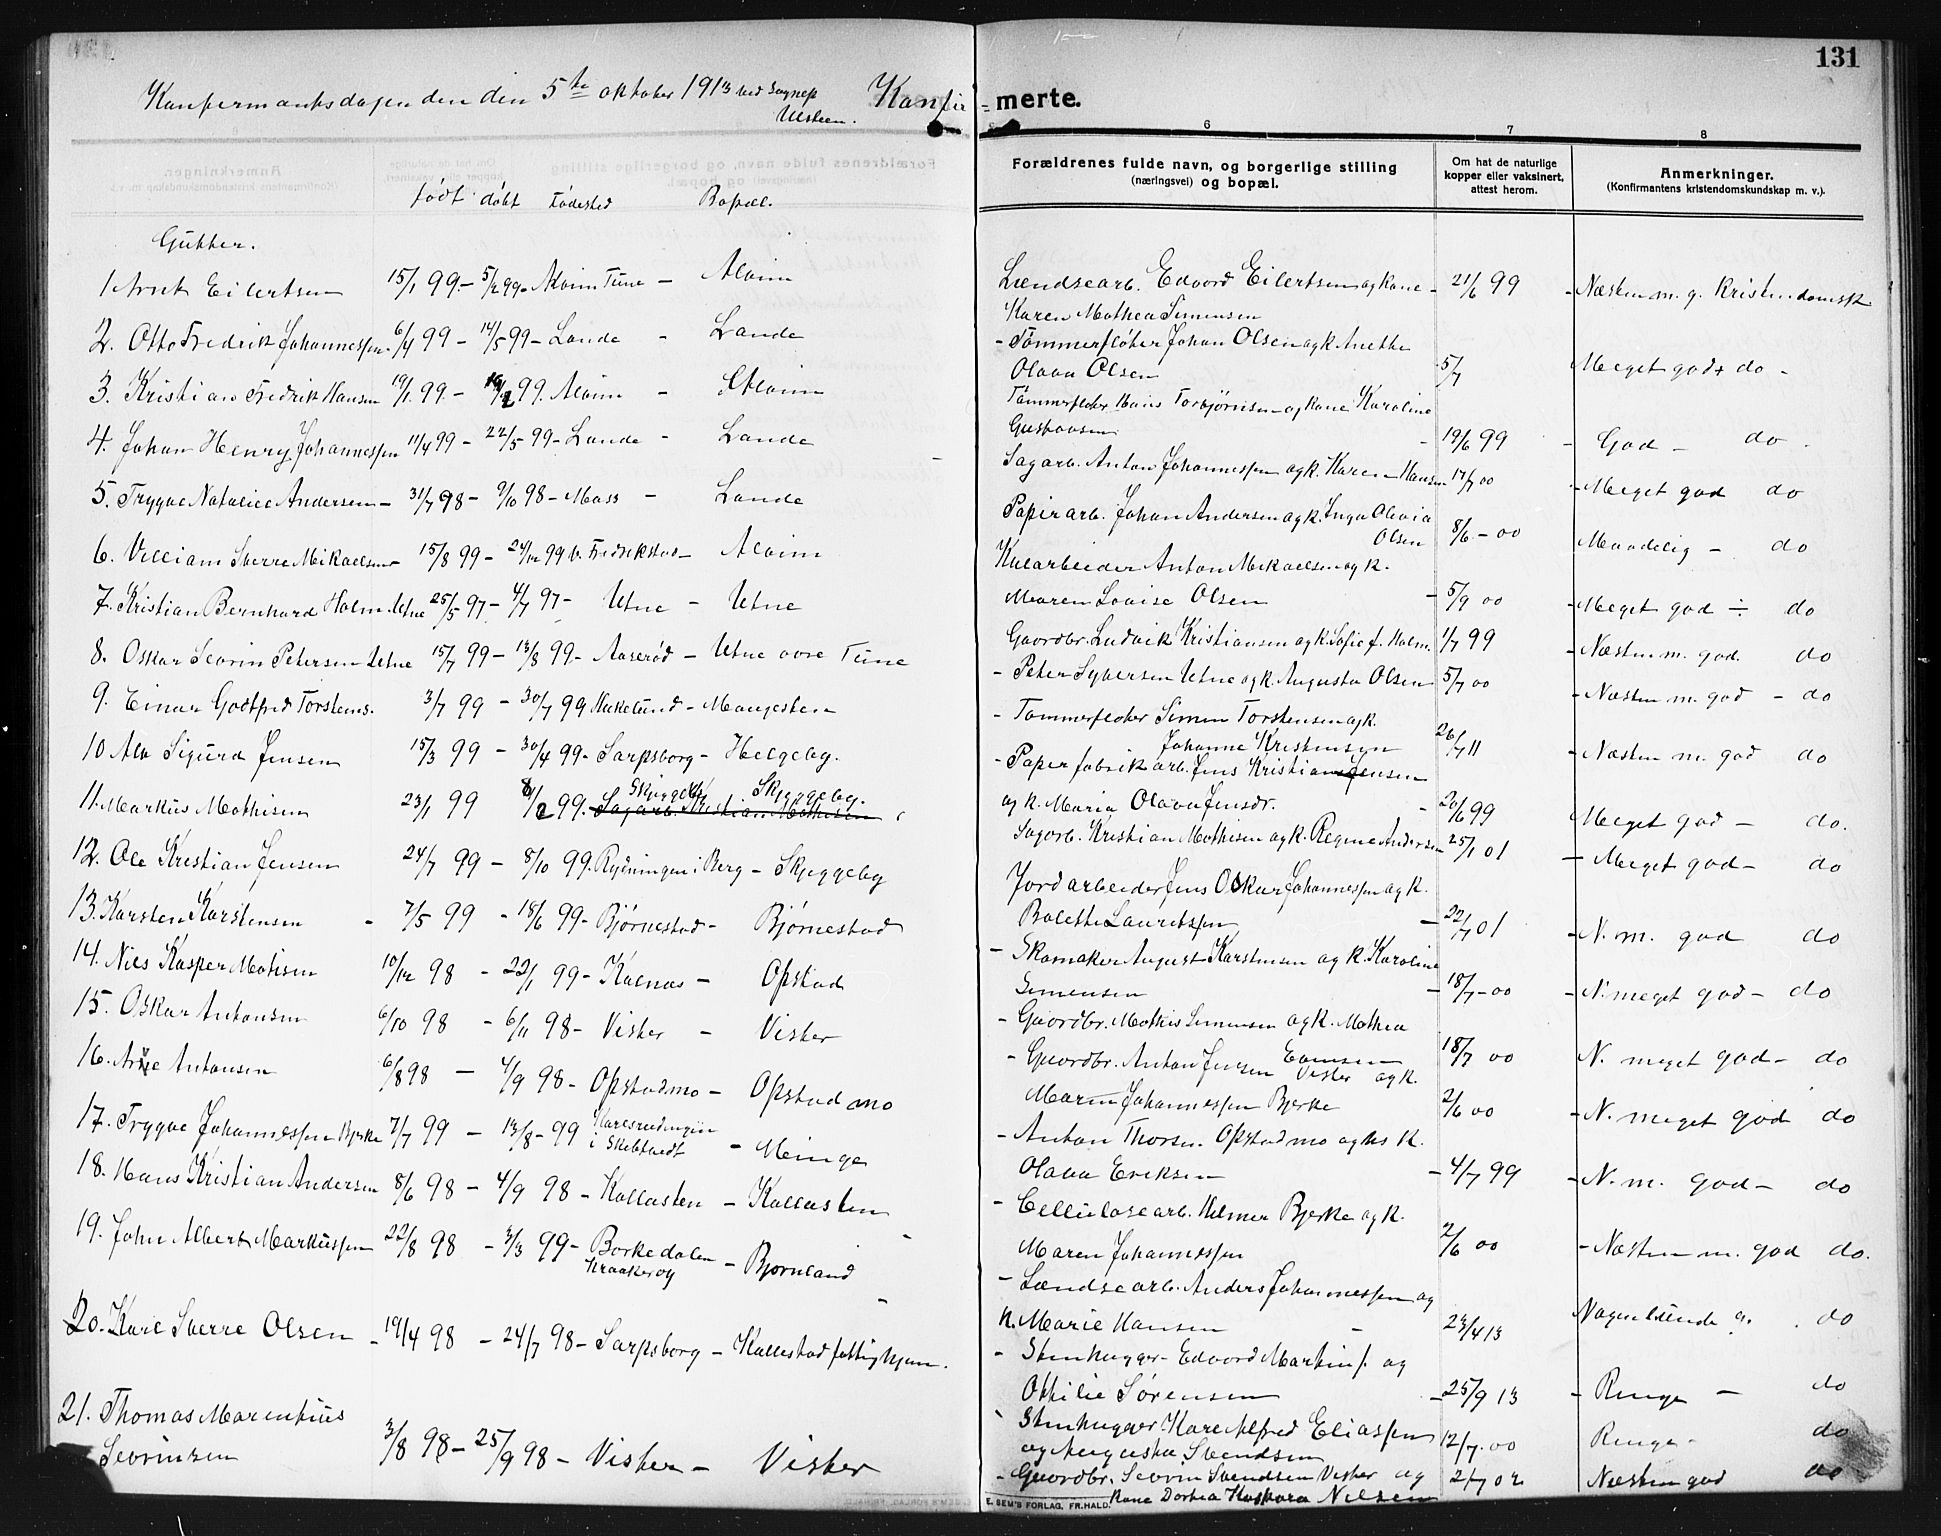 131
Konfirmantsdagen den den 5te oktober 1913 ved Sognep
Ulsteen.
Konfir-merte.
6 7 8
Forældrenes fulde navn, og borgerlige stilling
(næringsvei) og bopæl.
Om hat de naturlige
kopper eller vaksinert,
attest herom.
Anmerkninger.
(Konfirmantens kristendomskundskap m. v.).
født døbt Fødested Bopæl.
Gutter.
1 Arnt Eilertsen 15/1 99 - 5/2 99 - Alvim Tune - Alvim
2. Otto Fredrik Johannessen 6/4 99 - 14/5 99 - Lande - Lande
3. Kristian Fredrik Hansen 19/1 99 - 99. Alvim - Alvim
4. Johan Henry Johannessen 11/4 99 - 22/5 99 - Lande - Lande
5. Trygve Natalius Andersen - 31/7 98 - 9/10 98 - Moss - Lande
6. Villiam Sverre Mikaelsen 15/8 99 - 24/12 99 v. Fredrikstad - Alvim
7. Kristian Bernhard Holm Utne 25/5 97 - 4/7 97 - Utne - Utne
8. Oskar Sevrin Petersen Utne 15/7 99 - 13/8 99 - Aaserød - Utne øvre Tune
9. Einar Godtfred Torstens. 3/7 99 - 30/7 99 Hukelund - Mangesten
10 Alv Sigurd Jensen 15/3 99 - 30/4 99 - Sarpsborg - Helgeby.
11. Markus Mathisen 23/1 99 8/2 99. Skjeggeby Skjeggeby.
Sagarb. Kristian Mathisen
12. Ole Kristian Jensen 24/7 99 - 8/10 99. Rydningen i Berg - Skjeggeby
13. Karsten Karstensen - 7/5 99 - 18/6 99 - Bjørnestad - Bjørnestad
14. Nils Kasper Matisen 10/12 98 - 22/1 99 - Kalnæs - Opstad
15. Oskar Antonsen 6/10 98 - 6/11 98 - Vister - Vister
16. Arne Antonsen 6/8 98 - 4/9 98 - Opstadmo - Opstad mo
17. Trygve Johannessen Bjerke 7/7 99 - 13/8 - 99 i Skibtvedt - Minge
18. Hans Kristian Andersen 8/6 98 - 4/9 98 - Kallasten - Kallasten
19. John Albert Markussen 22/8 98 - 3/3 99 - Borkedalen
Kraakerøy - Bjørnland
20. Karl Sverre Olsen - 19/4 98 - 24/7 98 - Sarpsborg - Kallestad fattighjem.
21. Thomas Marentius
Sevrinsen 3/8 98 - 25/9 98 - Visker - Visker
Lændsearb. Edvard Eilertsen og kone - 21/6 99 - Næsten m. g. kristendomsk
Karen Mathea Simensen
- Tømmerfløter Johan Olsen og k. Anethe
Olava Olsen 5/7 Meget godt do -
Tømmerfløter Hans Torbjørnsen og kone Karoline
Gustavsen - 19/6 99 - God - do -
Sagarb. Anton Johannessen og k. Karen Hansen 17/7 00 - Meget god do
Papirarb. Johan Andersen og k. Inga Olavia
Olsen 8/6 - 00 Maadelig - do
Kularbeider Anton Mikaelsen og k.
Maren Lovise Olsen - 5/9 00 - Meget god ÷ do
Gaardbr. Ludvik Kristiansen og k. Sofie f. Holm. 1/7 99 - Næsten m. god. do
- Peter Syversen Utne og k. Augusta Olsen 5/7 00 - Næsten m. god - do
- Tømmerfløter Simen Torstensen og k.
Johanne Kristensen 26/7 11 - Næsten m. god do
- Papirfabrikarb. Jens Kristian Jensen
og k. Maria Olava Jensdr. - 20/6 99 Meget god - do.
Sagarb. Kristian Mathisen og k. Regine Andersen 25/1 01 - Meget god - do
Jordarbeider Jens Oskar Johannessen og k.
Bolette Lauritssen - 22/7 01 - N. m. god do
- Skomaker August Karstensen og k. Karoline
Simensen - 18/7 - 00 - N. meget god - do
- Gaardbr. Mathis Simensen og k. Mathea
Evensen 18/7 00 N. meget god - do
- Gaardbr. Anton Jensen Visker og k.
Maren Johannessen Bjerke 2/6 00 - N. meget god do
- Anton Thorsen. Opstad mo og hs k.
Olava Eriksen - 4/7 99 - N. m. god - do
- Cellulosearb. Hilmer Bjerke og k.
Maren Johannessen 2/6 00 - Næsten m. god do.
- Lændsearb. Anders Johannessen og
k. Marie Hansen - 23/4 13 Nogenlunde g. . do
- Stenhugger Edvard Martins. og
Othilie Sørensen - 25/9 13 - Ringe - do
- Stenhugger Karl Alfred Eliassen
og Augusta Svendsen 12/7 - 00 Ringe - do
- Gaardbr. Sevrin Svendsen Visker og 2/7 02 Næsten god do
kone Dortea Kaspara Nilsen
E. SEM'S FORLAG, FR.HALD.